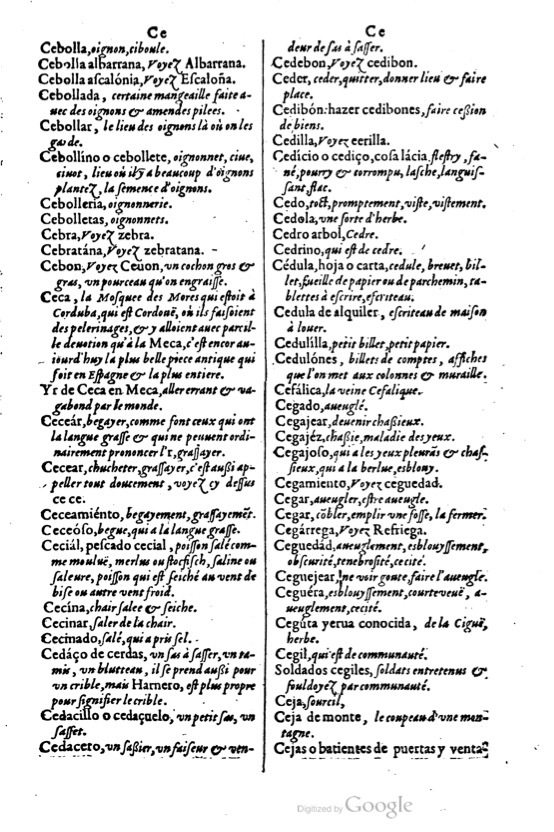 Ce
Cebolla, oignon, ciboule.
Cebolla albarrana, Voyez Albarrana.
Cebolla ascalónia, Voyez Escaloña.
Cebollada, certaine mangeaille faite a-
uec des oignons & amendes pilees.
Cebollar, le lieu des oignons là où on les
garde.
Cebollino o cebollete, oignonnet, ciue,
ciuot, lieu où il y a beaucoup d'oignons
plantez, la semence d'oignons.
Cebolleria, oignonnerie.
Cebolletas, oignonnets.
Cebra, Voyez zebra.
Cebratána, Voyez zebratana.
Cebon, Voyez Ceuon, vn cochon gros &
gras, vn pourceau qu'on engraisse.
Ceca, la Mosquee des Mores qui estoit à
Corduba, qui est Cordouë, où ils faisoient
des pelerinages, & y alloient auec pareil-
le deuotion qu'à la Meca, c'est encor au-
iourd'huy la plus belle piece antique qui
soit en Espagne & la plus entiere.
Yr de Ceca en Meca, aller errant & va-
gabond par le monde.
Ceceár, begayer, comme font ceux qui ont
la langue grasse & qui ne peuuent ordi-
nairement prononcer l'r, grassayer.
Cecear, chucheter, grassayer, c'est aussi ap-
peller tout doucement, voyez cy dessus
ce ce.
Ceceamiénto, begayement, grassayemēt.
Ceceóso, begue, qui a la langue grasse.
Ceciál, pescado cecial, poisson salé com-
me mouluë, merlus ou stocfisch, saline ou
saleure, poisson qui est seiché au vent de
bise ou autre vent froid.
Cecína, chair salee & seiche.
Cecinar, saler de la chair.
Cecinado, salé, qui a pris sel.
Cedáço de cerdas, vn sas à sasser, vn ta-
mis, vn blutteau, il se prend aussi pour
vn crible, mais Harnero, est plus propre
pour signifier le crible.
Cedacillo o cedaçuelo, vn petit sas, vn
sasset.
Cedacero, vn sassier, vn faiseur & ven-
Ce
deur de sas à sasser.
Cedebon, Voyez cedibon.
Ceder, ceder, quitter, donner lieu & faire
place.
Cedibón: hazer cedibones, faire cession
de biens.
Cedilla, Voyez cerilla.
Cedício o cediço, cosa lácia flestry, fa-
né, pourry & corrompu, lasche, languis-
sant, flac.
Cedo, tost, promptement, viste, vistement.
Cedola, vne sorte d'herbe.
Cedro arbol, Cedre.
Cedrino, qui est de cedre.
Cédula, hoja o carta, cedule, breuet, bil-
let, fueille de papier ou de parchemin, ta-
blettes à escrire, escriteau.
Cedula de alquiler, escriteau de maison
à louer.
Cedulílla, petit billet, petit papier.
Cedulónes, billets de comptes, affiches
que l'on met aux colonnes & muraille.
Cefálica, la veine Cefalique.
Cegado, aueuglé.
Cegajear, deuenir chassieux.
Cegajéz, chassie, maladie des yeux.
Cegajoso, qui a les yeux pleurās & chas-
sieux, qui a la berlue, esblouy.
Cegamiento, Voyez ceguedad.
Cegar, aueugler, estre aueugle.
Cegar, cōbler, emplir vne fosse, la fermer.
Cegárrega, Voyez Refriega.
Ceguedad, aueuglement, esblouyssement,
obscurité, tenebrosité, cecité.
Ceguejear, ne voir goute, faire l'aueugle.
Ceguéra, esblouyssement, courteveuë, a-
ueuglement, cecité.
Cegúta yerua conocida, de la Ciguë,
herbe.
Cegil, qui est de communauté.
Soldados cegiles, soldats entretenus &
souldoyez par communauté.
Ceja, sourcil,
Ceja de monte, le coupeau d'vne mon-
tagne.
Cejas o batientes de puertas y venta-
Digitized by Google